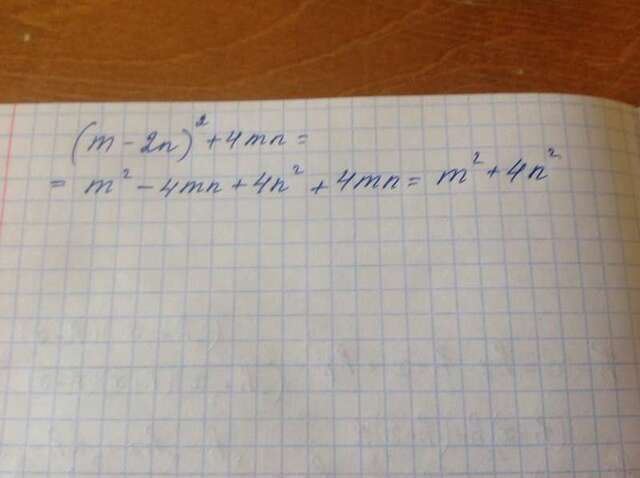 (m - 2n)² + 4mn =
= m² - 4mn + 4n² + 4mn = m² + 4n²